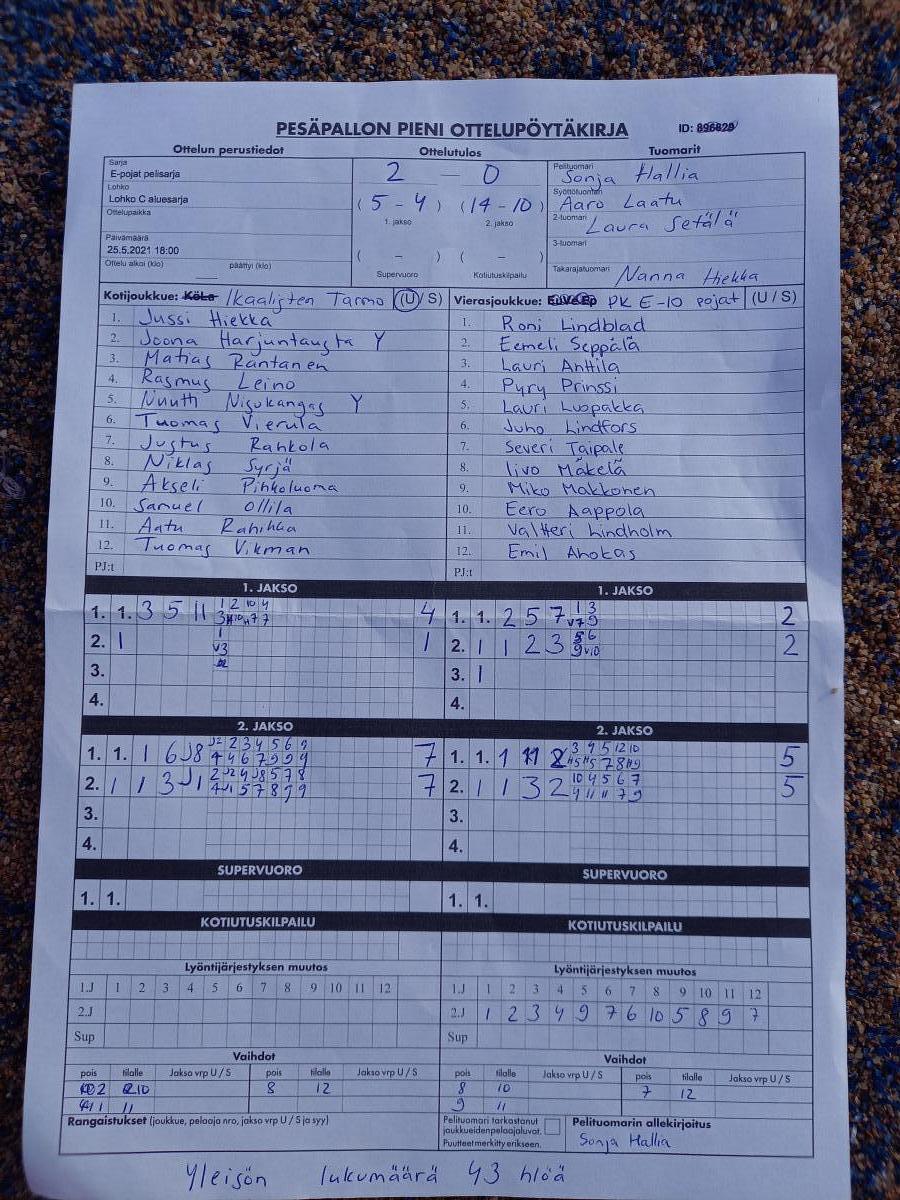 PESÄPALLON PIENI OTTELUPÖYTÄKIRJA ID: 896629
Ottelun perustiedot Ottelutulos Tuomarit
Sarja
E-pojat pelisarja
Lohko
Lohko C aluesarja
Ottelupaikka
Päivämäärä
25.5.2021 18:00
Ottelu alkoi (klo) päättyi (klo)
2 – 0
(5 - 4) (14 - 10)
1. jakso 2. jakso
( – ) ( – )
Supervuoro Kotiutuskilpailu
Pelituomari
Sonja Hallia
Syöttötuomari
Aaro Laatu
2-tuomari
Laura Setälä
3-tuomari
Takarajatuomari
Nanna Hiekka
Kotijoukkue: KöLa Ikaalisten Tarmo (U/S)
1. Jussi Hiekka
2. Joona Harjuntausta Y
3. Matias Rantanen
4. Rasmus Leino
5. Nuutti Nisukangas Y
6. Tuomas Vierula
7. Justus Rahkola
8. Niklas Syrjä
9. Akseli Pihkoluoma
10. Samuel Ollila
11. Aatu Rahikka
12. Tuomas Vikman
PJ:t
Vierasjoukkue: PK E-10 pojat (U/S)
1. Roni Lindblad
2. Eemeli Seppälä
3. Lauri Anttila
4. Pyry Prinssi
5. Lauri Luopakka
6. Juho Lindfors
7. Severi Taipale
8. Iivo Mäkelä
9. Miko Makkonen
10. Eero Aappola
11. Valtteri Lindholm
12. Emil Ahokas
PJ:t
1. JAKSO
1. 1. 3 5 11 4
2. 1 1
3.
4.
1. JAKSO
1. 1. 2 5 7 2
2. 1 1 2 3 2
3. 1
4.
2. JAKSO
1. 1. 1 6 J8 7
2. 1 1 3 J1 7
3.
4.
2. JAKSO
1. 1. 1 11 2 5
2. 1 1 3 2 5
3.
4.
SUPERVUORO
1. 1.
SUPERVUORO
1. 1.
KOTIUTUSKILPAILU
KOTIUTUSKILPAILU
Lyöntijärjestyksen muutos
1.J 1 2 3 4 5 6 7 8 9 10 11 12
2.J
Sup
Lyöntijärjestyksen muutos
1.J 1 2 3 4 5 6 7 8 9 10 11 12
2.J 1 2 3 4 9 7 6 10 5 8 9 7
Sup
Vaihdot
pois tilalle Jakso vrp U / S pois tilalle Jakso vrp U / S
2 10 8 12
11
Vaihdot
pois tilalle Jakso vrp U / S pois tilalle Jakso vrp U / S
8 10 7 12
9 11
Rangaistukset (joukkue, pelaaja nro, jakso vrp U / S ja syy)
Pelituomari tarkastanut
joukkueidenpelaajaluvat.
Puutteet merkitty erikseen.
Pelituomarin allekirjoitus
Sonja Hallia
Yleisön lukumäärä 43 hlöä